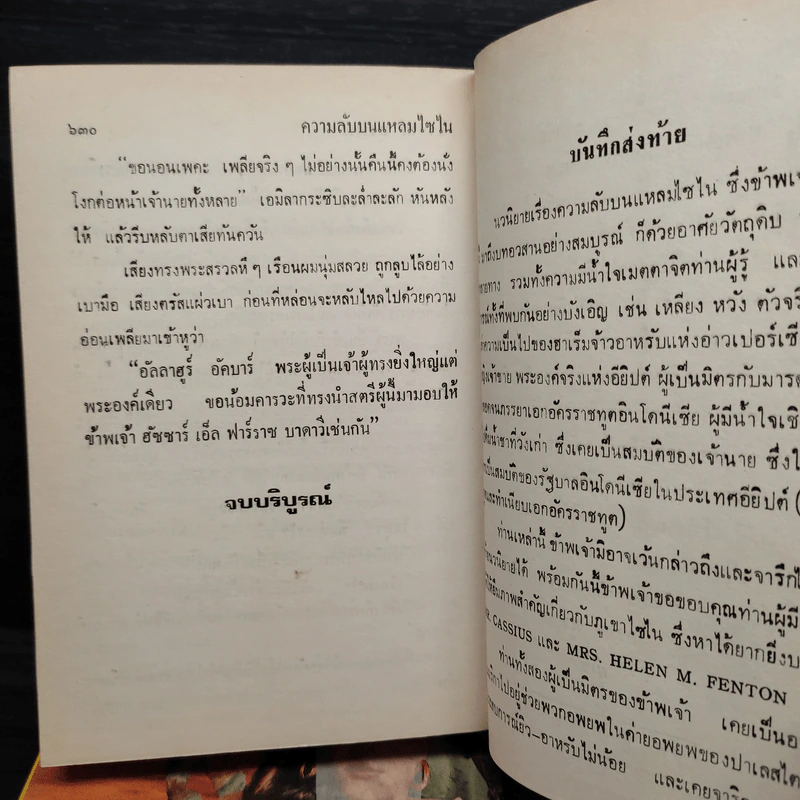 ๖๓๐ ความลับบนแหลมไซไน
“ขอนอนเพคะ เพลียจริง ๆ ไม่อย่างนั้นคืนนี้คงต้องนั่ง
โงกต่อหน้าเจ้านายทั้งหลาย” เอมิลากระซิบละล่ำละลัก หันหลัง
ให้ แล้วรีบหลับตาเสียทันควัน
เสียงทรงพระสรวลหึ ๆ เรือนผมนุ่มสลวย ถูกลูบไล้อย่าง
เบามือ เสียงตรัสแผ่วเบา ก่อนที่หล่อนจะหลับไหลไปด้วยความ
อ่อนเพลียมาเข้าหูว่า
“อัลลาฮูร์ อัคบาร์ พระผู้เป็นเจ้าผู้ทรงยิ่งใหญ่แต่
พระองค์เดียว ขอน้อมคารวะที่ทรงนำสตรีผู้นี้มามอบให้
ข้าพเจ้า ฮัซซาร์ เอ็ล ฟาร์ราช บาดาวีเช่นกัน”
จบบริบูรณ์
บันทึกส่งท้าย
นวนิยายเรื่องความลับบนแหลมไซไน ซึ่งข้าพเจ้
มาถึงบทอวสานอย่างสมบูรณ์ ก็ด้วยอาศัยวัตถุดิบ
รวมทั้งความมีน้ำใจเมตตาจิตท่านผู้รู้
ทั้งที่พบกันอย่างบังเอิญ เช่น เหลียง หวัง ตัวจริ
ความเป็นไปของฮาเร็มจ้าวอาหรับแห่งอ่าวเปอร์เซี
พระองค์จริงแห่งอียิปต์ ผู้เป็นมิตรกับมารด
ภรรยาเอกอัครราชทูตอินโดนีเซีย ผู้มีน้ำใจเชิ
น้ำชาที่วังเก่า ซึ่งเคยเป็นสมบัติของเจ้านาย ซึ่งใ
เป็นสมบัติของรัฐบาลอินโดนีเซียในประเทศอียิปต์ (
และทำเนียบเอกอัครราชทูต)
ท่านเหล่านี้ ข้าพเจ้ามิอาจเว้นกล่าวถึงและจารึกไ
นวนิยายได้ พร้อมกันนี้ข้าพเจ้าขอขอบคุณท่านผู้มี
ให้ยืมภาพสำคัญเกี่ยวกับภูเขาไซไน ซึ่งหาได้ยากยิ่งบ
CASSIUS และ MRS. HELEN M. FENTON
ท่านทั้งสองผู้เป็นมิตรของข้าพเจ้า เคยเป็นอ
ไปอยู่ช่วยพวกอพยพในค่ายอพยพของปาเลสไต
การณ์ยิว–อาหรับไม่น้อย และเคยจาริ